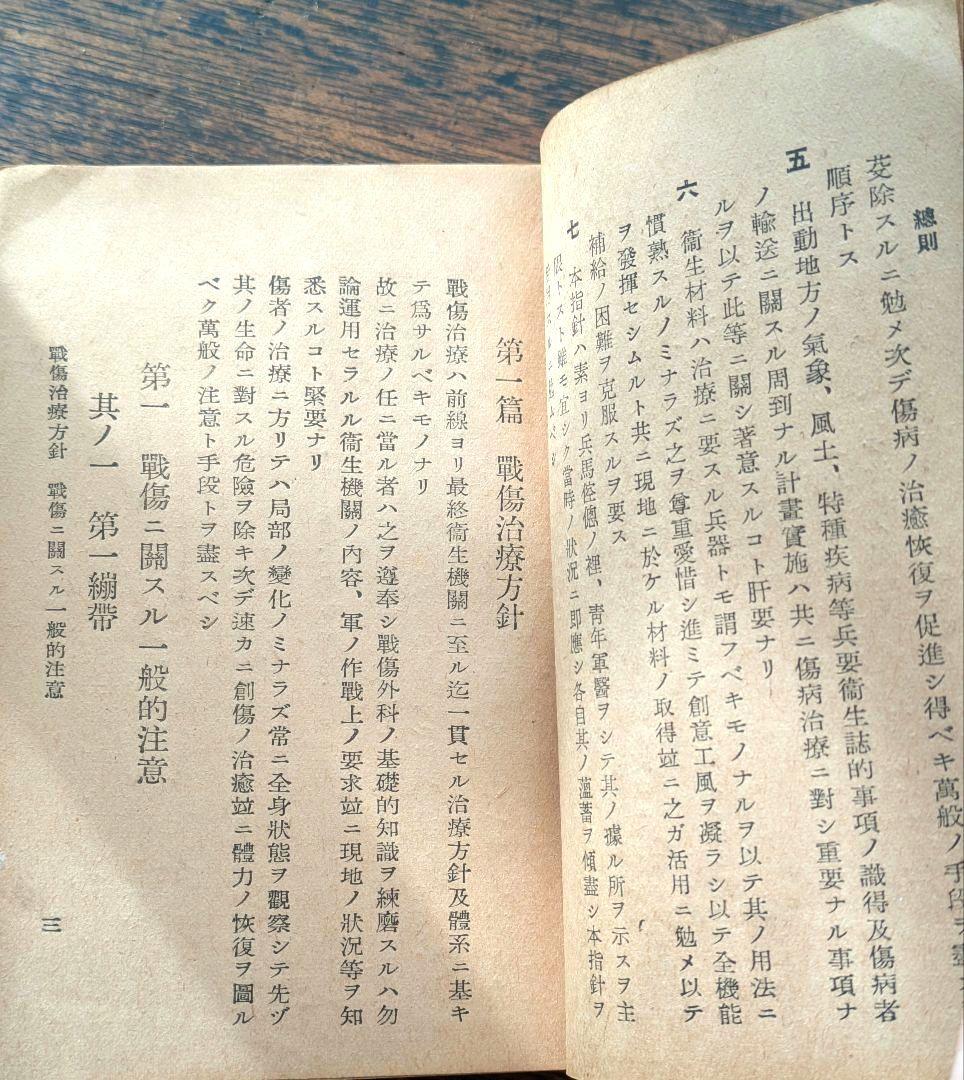 總則
芟除スルニ勉メ次デ傷病ノ治癒恢復ヲ促進シ得ベキ萬般ノ手段ヲ盡
順序トス
五 出動地方ノ氣象、風土、特種疾病等兵要衞生誌的事項ノ識得及傷病者
ノ輸送ニ關スル周到ナル計畫實施ハ共ニ傷病治療ニ對シ重要ナル事項ナ
ルヲ以テ此等ニ關シ著意スルコト肝要ナリ
六 衞生材料ハ治療ニ要スル兵器トモ謂フベキモノナルヲ以テ其ノ用法ニ
慣熟スルノミナラズ之ヲ尊重愛惜シ進ミテ創意工風ヲ凝ラシ以テ全機能
ヲ發揮セシムルト共ニ現地ニ於ケル材料ノ取得竝ニ之ガ活用ニ勉メ以テ
補給ノ困難ヲ克服スルヲ要ス
七 本指針ハ素ヨリ兵馬倥傯ノ裡、青年軍醫ヲシテ其ノ據ル所ヲ示スヲ主
限トスト雖モ宜シク當時ノ狀況ニ即應シ各自其ノ薀蓄ヲ傾盡シ本指針ヲ
第一篇 戰傷治療方針
戰傷治療ハ前線ヨリ最終衞生機關ニ至ル迄一貫セル治療方針及體系ニ基キ
テ爲サルベキモノナリ
故ニ治療ノ任ニ當ル者ハ之ヲ遵奉シ戰傷外科ノ基礎的知識ヲ練磨スルハ勿
論運用セラルル衞生機關ノ内容、軍ノ作戰上ノ要求竝ニ現地ノ狀況等ヲ知
悉スルコト緊要ナリ
傷者ノ治療ニ方リテハ局部ノ變化ノミナラズ常ニ全身狀態ヲ觀察シテ先ヅ
其ノ生命ニ對スル危險ヲ除キ次デ速カニ創傷ノ治癒竝ニ體力ノ恢復ヲ圖ル
ベク萬般ノ注意ト手段トヲ盡スベシ
第一 戰傷ニ關スル一般的注意
其ノ一 第一繃帶
戰傷治療方針 戰傷ニ關スル一般的注意
三